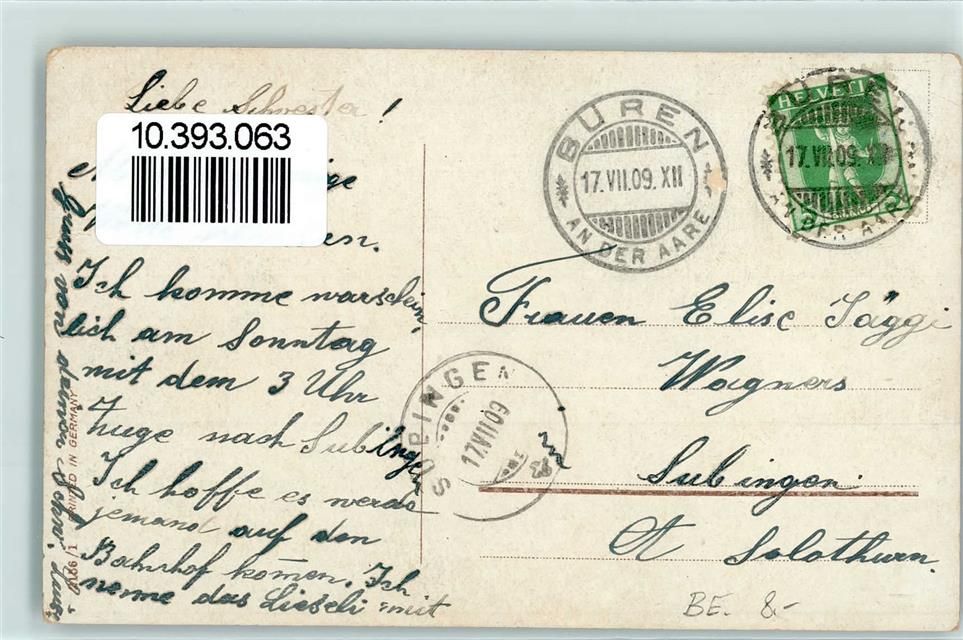 Liebe Schwester!
10.393.063
Ich komme warschein
lich am Sonntag
mit dem 3 Uhr
Zuge nach Subingen
Ich hoffe es werde
jemand auf den
Bahnhof komen. Ich
neme das Lieseli mit
Gruss von deiner
PRINTED IN GERMANY
BÜREN
17.VII.09.XII
AN DER AARE
HELVETIA
BÜREN
17.VII.09.XII
AN DER AARE
Frauen Elise Jäggi
Wagners
Subingen
Ct Solothurn.
SUBINGEN
17.VII09
BE. 8.-